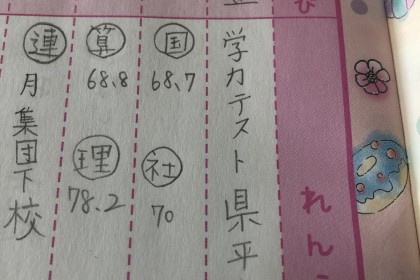 び
れん
学力テスト県平
国 68.7 社 70
算 68.8 理 78.2
連 月集団下校